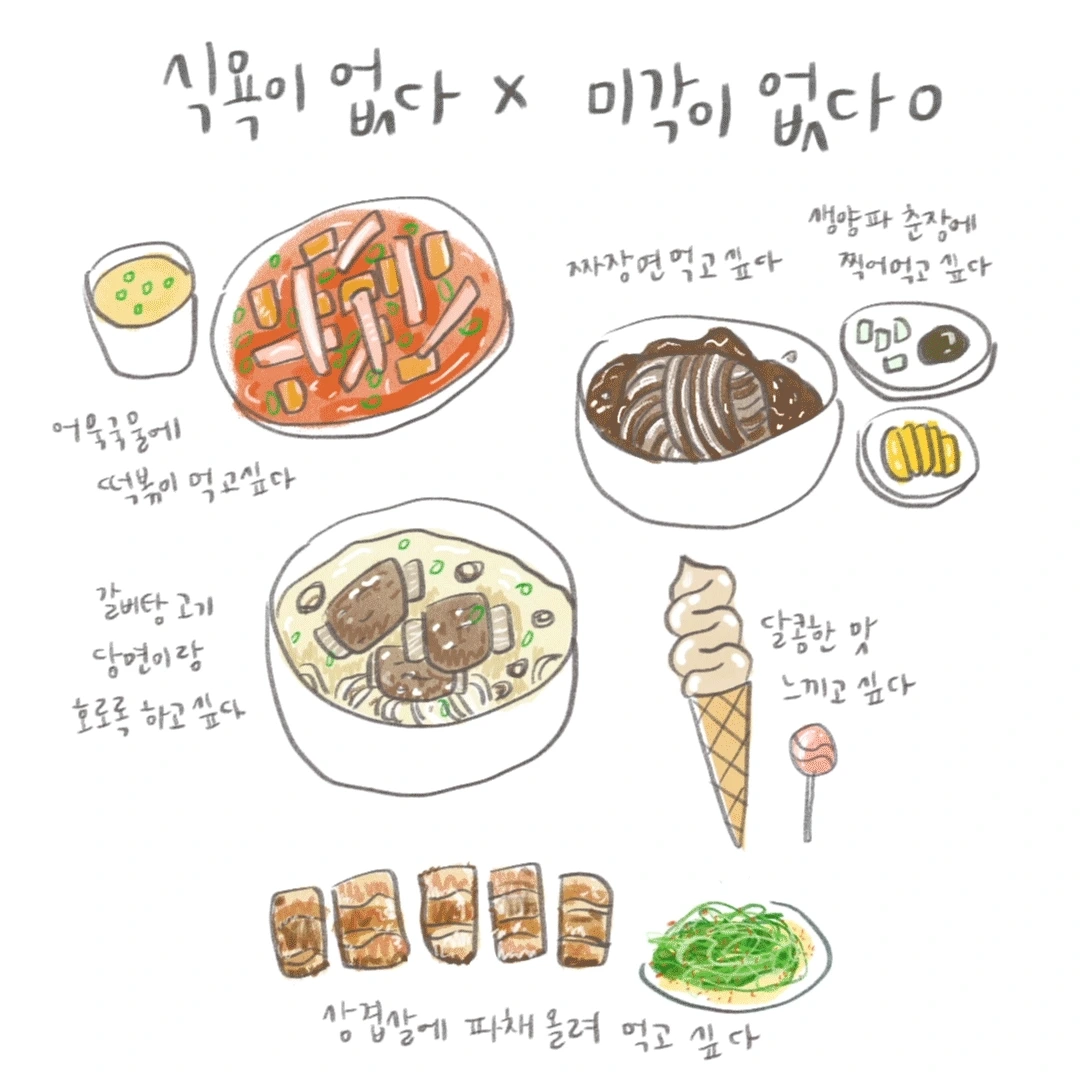 식욕이 없다 X 미각이 없다 O
생양파 춘장에
찍어먹고 싶다
짜장면 먹고 싶다
어묵국물에
떡볶이 먹고싶다
갈비탕 고기
당면이랑
호로록 하고 싶다
달콤한 맛
느끼고 싶다
삼겹살에 파채 올려 먹고 싶다